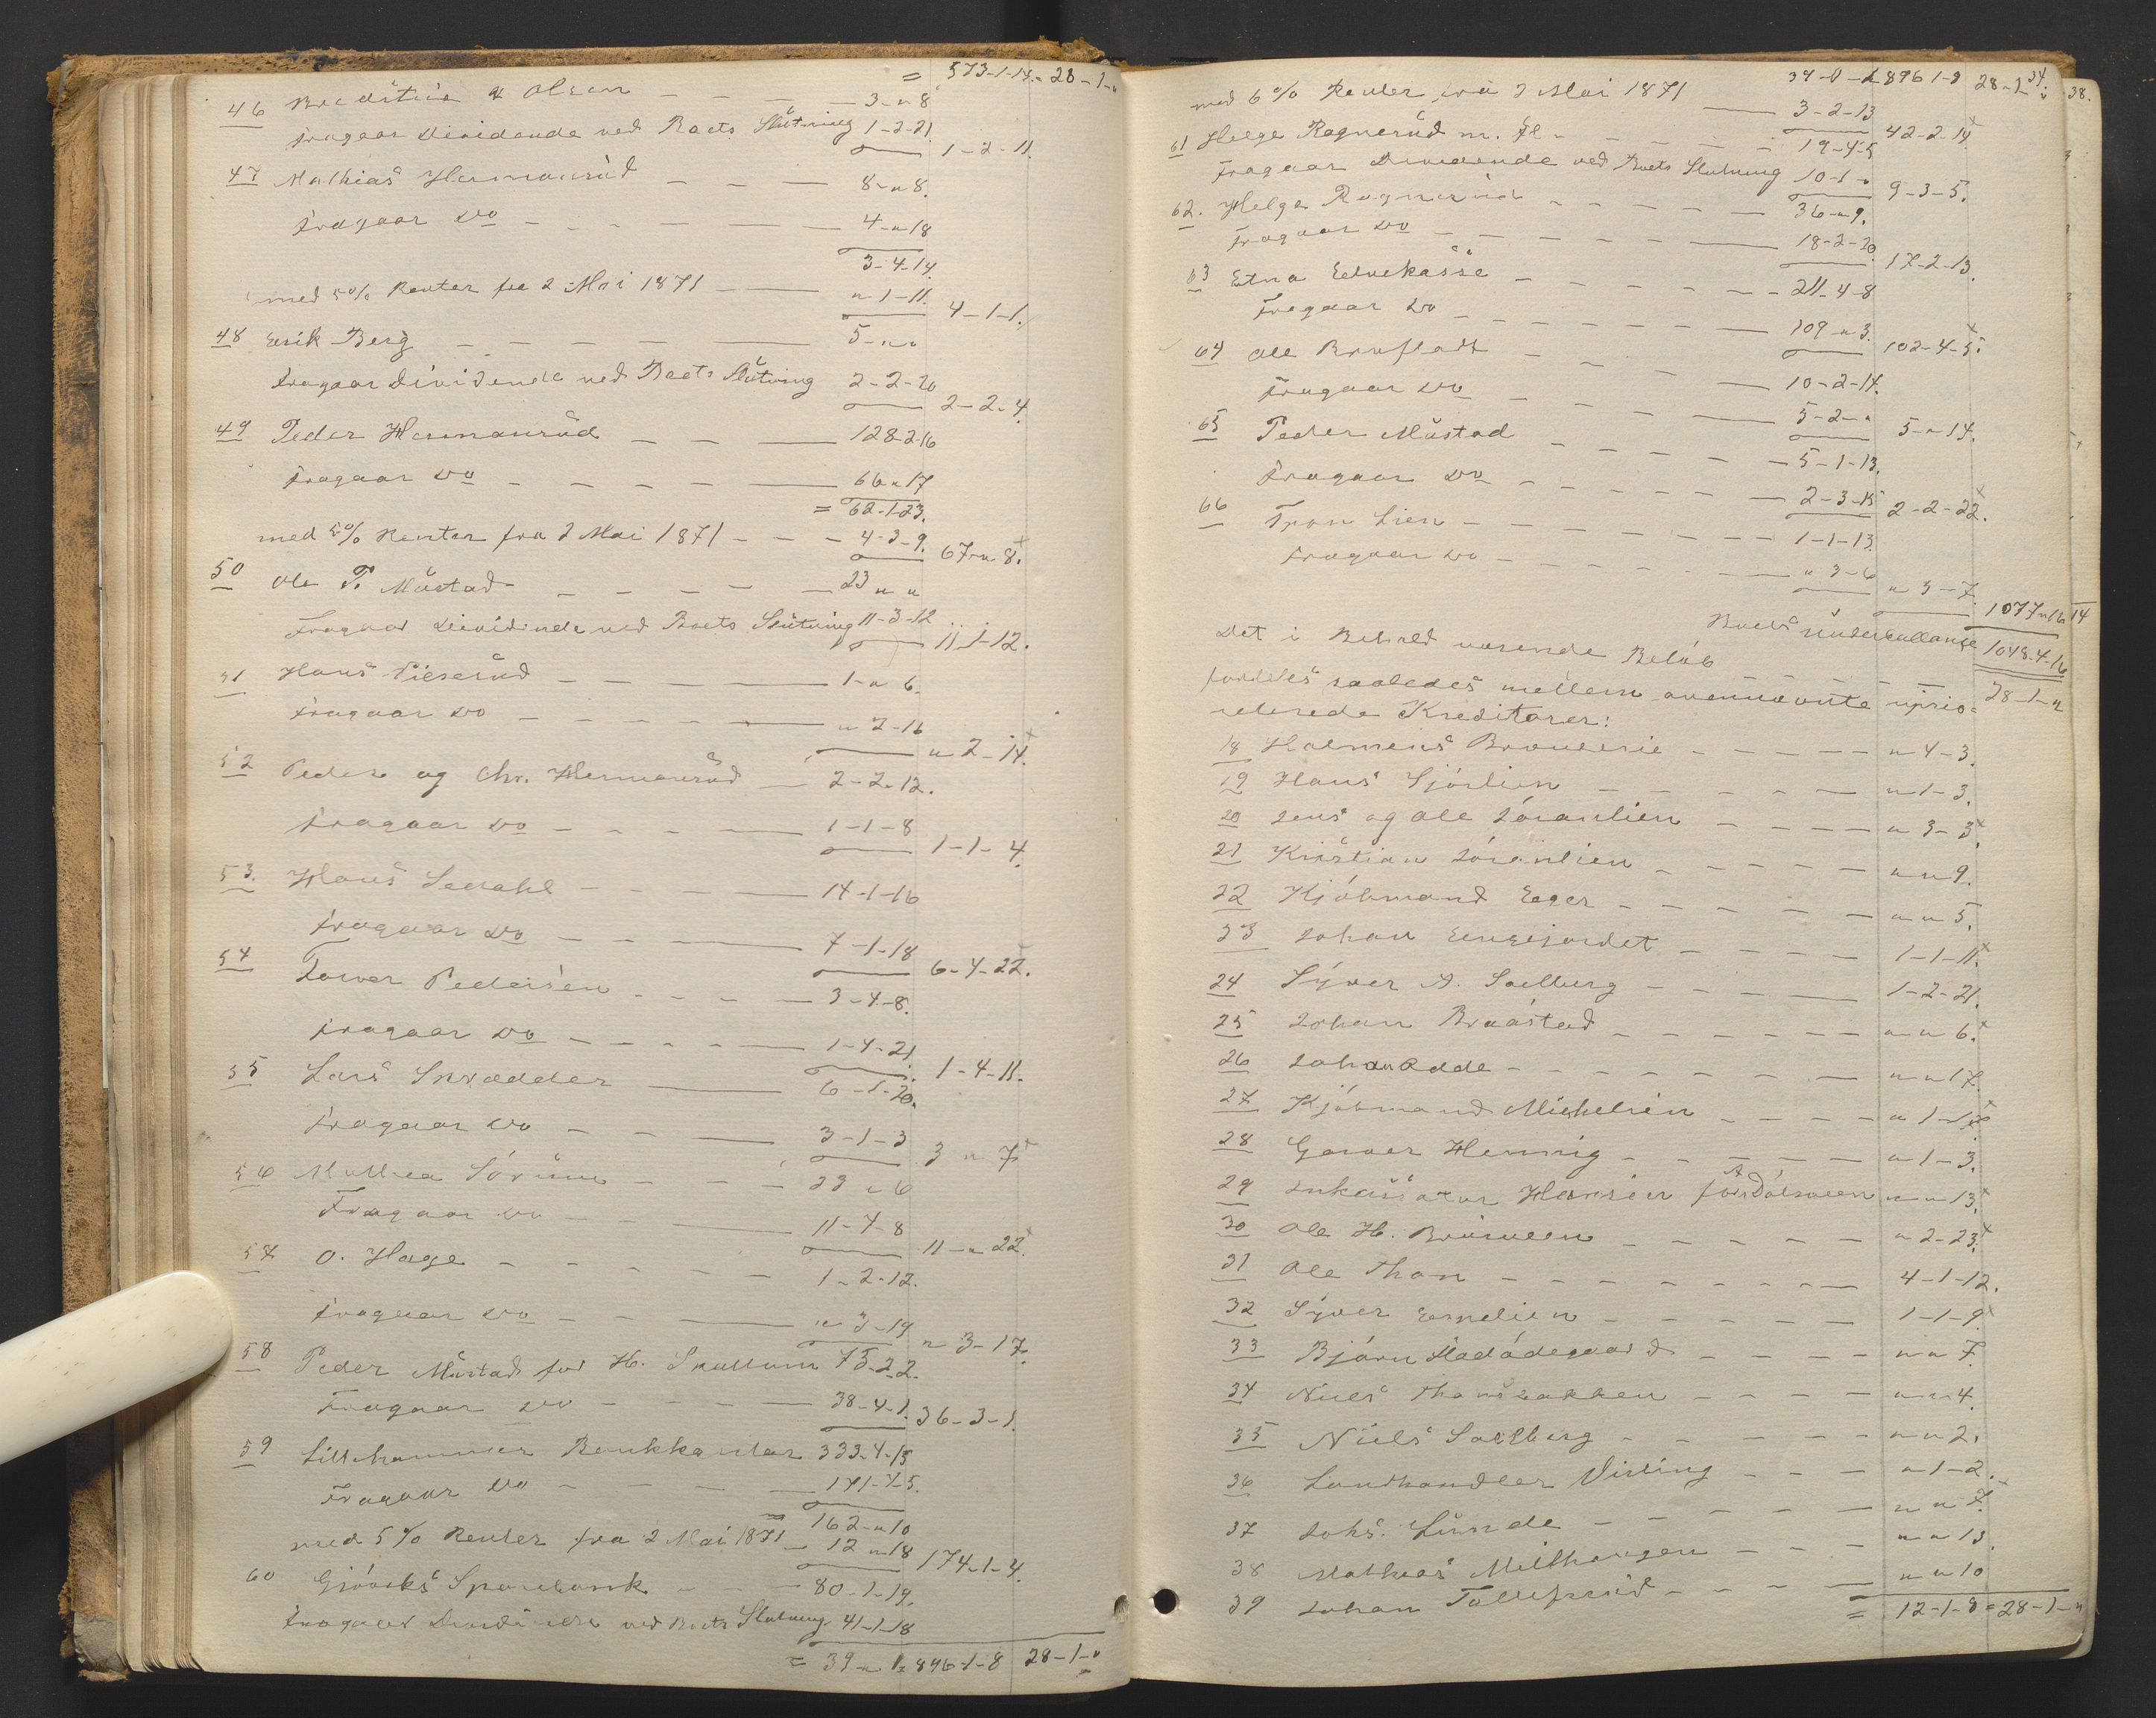 = 573-1-14 = 28-1-"
46 Bredstue & Olsen - - - 3-"-8
fragaar Dividende ved Boets Slutning 1-2-21
1-2-11.
47 Mathias Hermanrud - - 8-"-8.
fragaar Do - - - - 4-"-18
3-4-14.
med 5% Renter fra 2 Mai 1871 " 1-11. 4-1-1.
48 Erik Berg - - - - 5-"-"
fragaar Dividende ved Boets Slutning 2-2-20
2-2-4
49 Peder Hermanrud - - 128-2-16
fragaar Do - - - - 66-"-17
= 62-1-23.
med 5% Renter fra 2 Mai 1871 - - - 4-3-9. 67-"-8.
50 Ole P. Mustad - - - - 23 " "
Fragaar Dividende ved Boets Slutning 11-3-12
11-1-12.
51 Hans - - - 1-"-6.
fragaar Do - - - - " 2-16
" 2-14.
52 Peder og Chr. Hermanrud - 2-2-12.
fragaar Do - - - 1-1-8
1-1-4.
53. Hans - - - 14-1-16
fragaar Do - - - 7-1-18
6-4-22.
54 Pedersen - - - - 3-4-8.
fragaar Do - - - - 1-4-21
1-4-11.
55 Lars Skrædder 6-1-20.
fragaar Do - - 3-1-3
3 " 7
56 Mathea Sørum - - - 23 " 6
Fragaar Do - - 11-4-8
11-"-22.
57 O. Hage - - - - - 1-2-12.
fragaar Do - - " 3-19
" 3-17.
58 Peder Mustad for H. Skullum 75-2-2.
Fragaar Do - - - 38-4-1. 36-3-1.
59 Lillehammer Bankkontor 333-4-15
Fragaar Do - - - - 171-4-5.
162-"-10
med 5% Renter fra 2 Mai 1871 - 12 " 18 174-1-4.
60 Gjøviks Sparebank - - - 80-1-19.
fragaar Dividende ved Boets Slutning 41-1-18
= 39-"-1 = 896-1-8 28-1-"
34. 38.
39-0-1 896 1-8 28-1-"
med 6% Renter fra 2 Mai 1871 3-2-13
42-2-14
61 Helge Ragnerud m. fl - - - - 19-4-5
Fragaar Dividende ved Boets Slutning 10-1-"
9-3-5.
62. Helge Ragnerud - - - - - 36-"-9.
Fragaar Do - - - - - 18-2-20.
17-2-13.
63 Etna - - - - - - 211-4-8
Fragaar Do - - - - - - 109-"-3.
102-4-5.
64 Ole - - - - 10-2-14.
fragaar Do - - - - 5-2-"
5-"-14.
65 Peder Mustad - - - - - 5-1-13.
fragaar Do - - - - - - 2-3-15
2-2-22.
66 Tron Lien - - - - - - 1-1-13.
fragaar Do - - - - - " 3-6
" 3-7.
1077 " 16 14
Boets Underballanse 1048-4-16
Det i Behold værende Beløb - - - - 28-1-"
fordeles saaledes mellem ovennævnte uprio-
riterede Kreditorer:
18 Holmens Brænderie - - - - - " 4-3.
19 Hans Sjørlien - - - - - " 1-3.
20 Jens og Ole Jøranlien - - - - " 3-3.
21 Kristian Jøranlien - - - - - " " 9.
22 Kjøbmand Eger - - - - - " " 5.
23 Johan Eengejordet - - - - 1-1-11.
24 Syver A. Soelberg - - - - 1-2-21.
25 Johan Braastad - - - - - " " 6.
26 Johan Odde - - - - - - " " 17.
27 Kjøbmand Michelsen - - - - " 1-
28 Garver Hennig - - - - - " 1-3.
29 Inkassator Hansen for A Dølsveen " " 13.
30 Ole H. - - - - - " 2-23.
31 Ole Thon - - - - - - - 4-1-12.
32 Syver - - - - - 1-1-9.
33 Bjørn Hadødegaard - - - - " " 7.
34 Niels Thonsbakken - - - - " " 4.
35 Niels Soelberg - - - - - " " 2.
36 Landhandler - - - " 1-2.
37 Johs. Lunde - - - - - - " " 7.
38 Mathias - - - " " 13.
39 Johan Tollefsrud - - - - " " 10
= 12-1-8 = 28-1-"